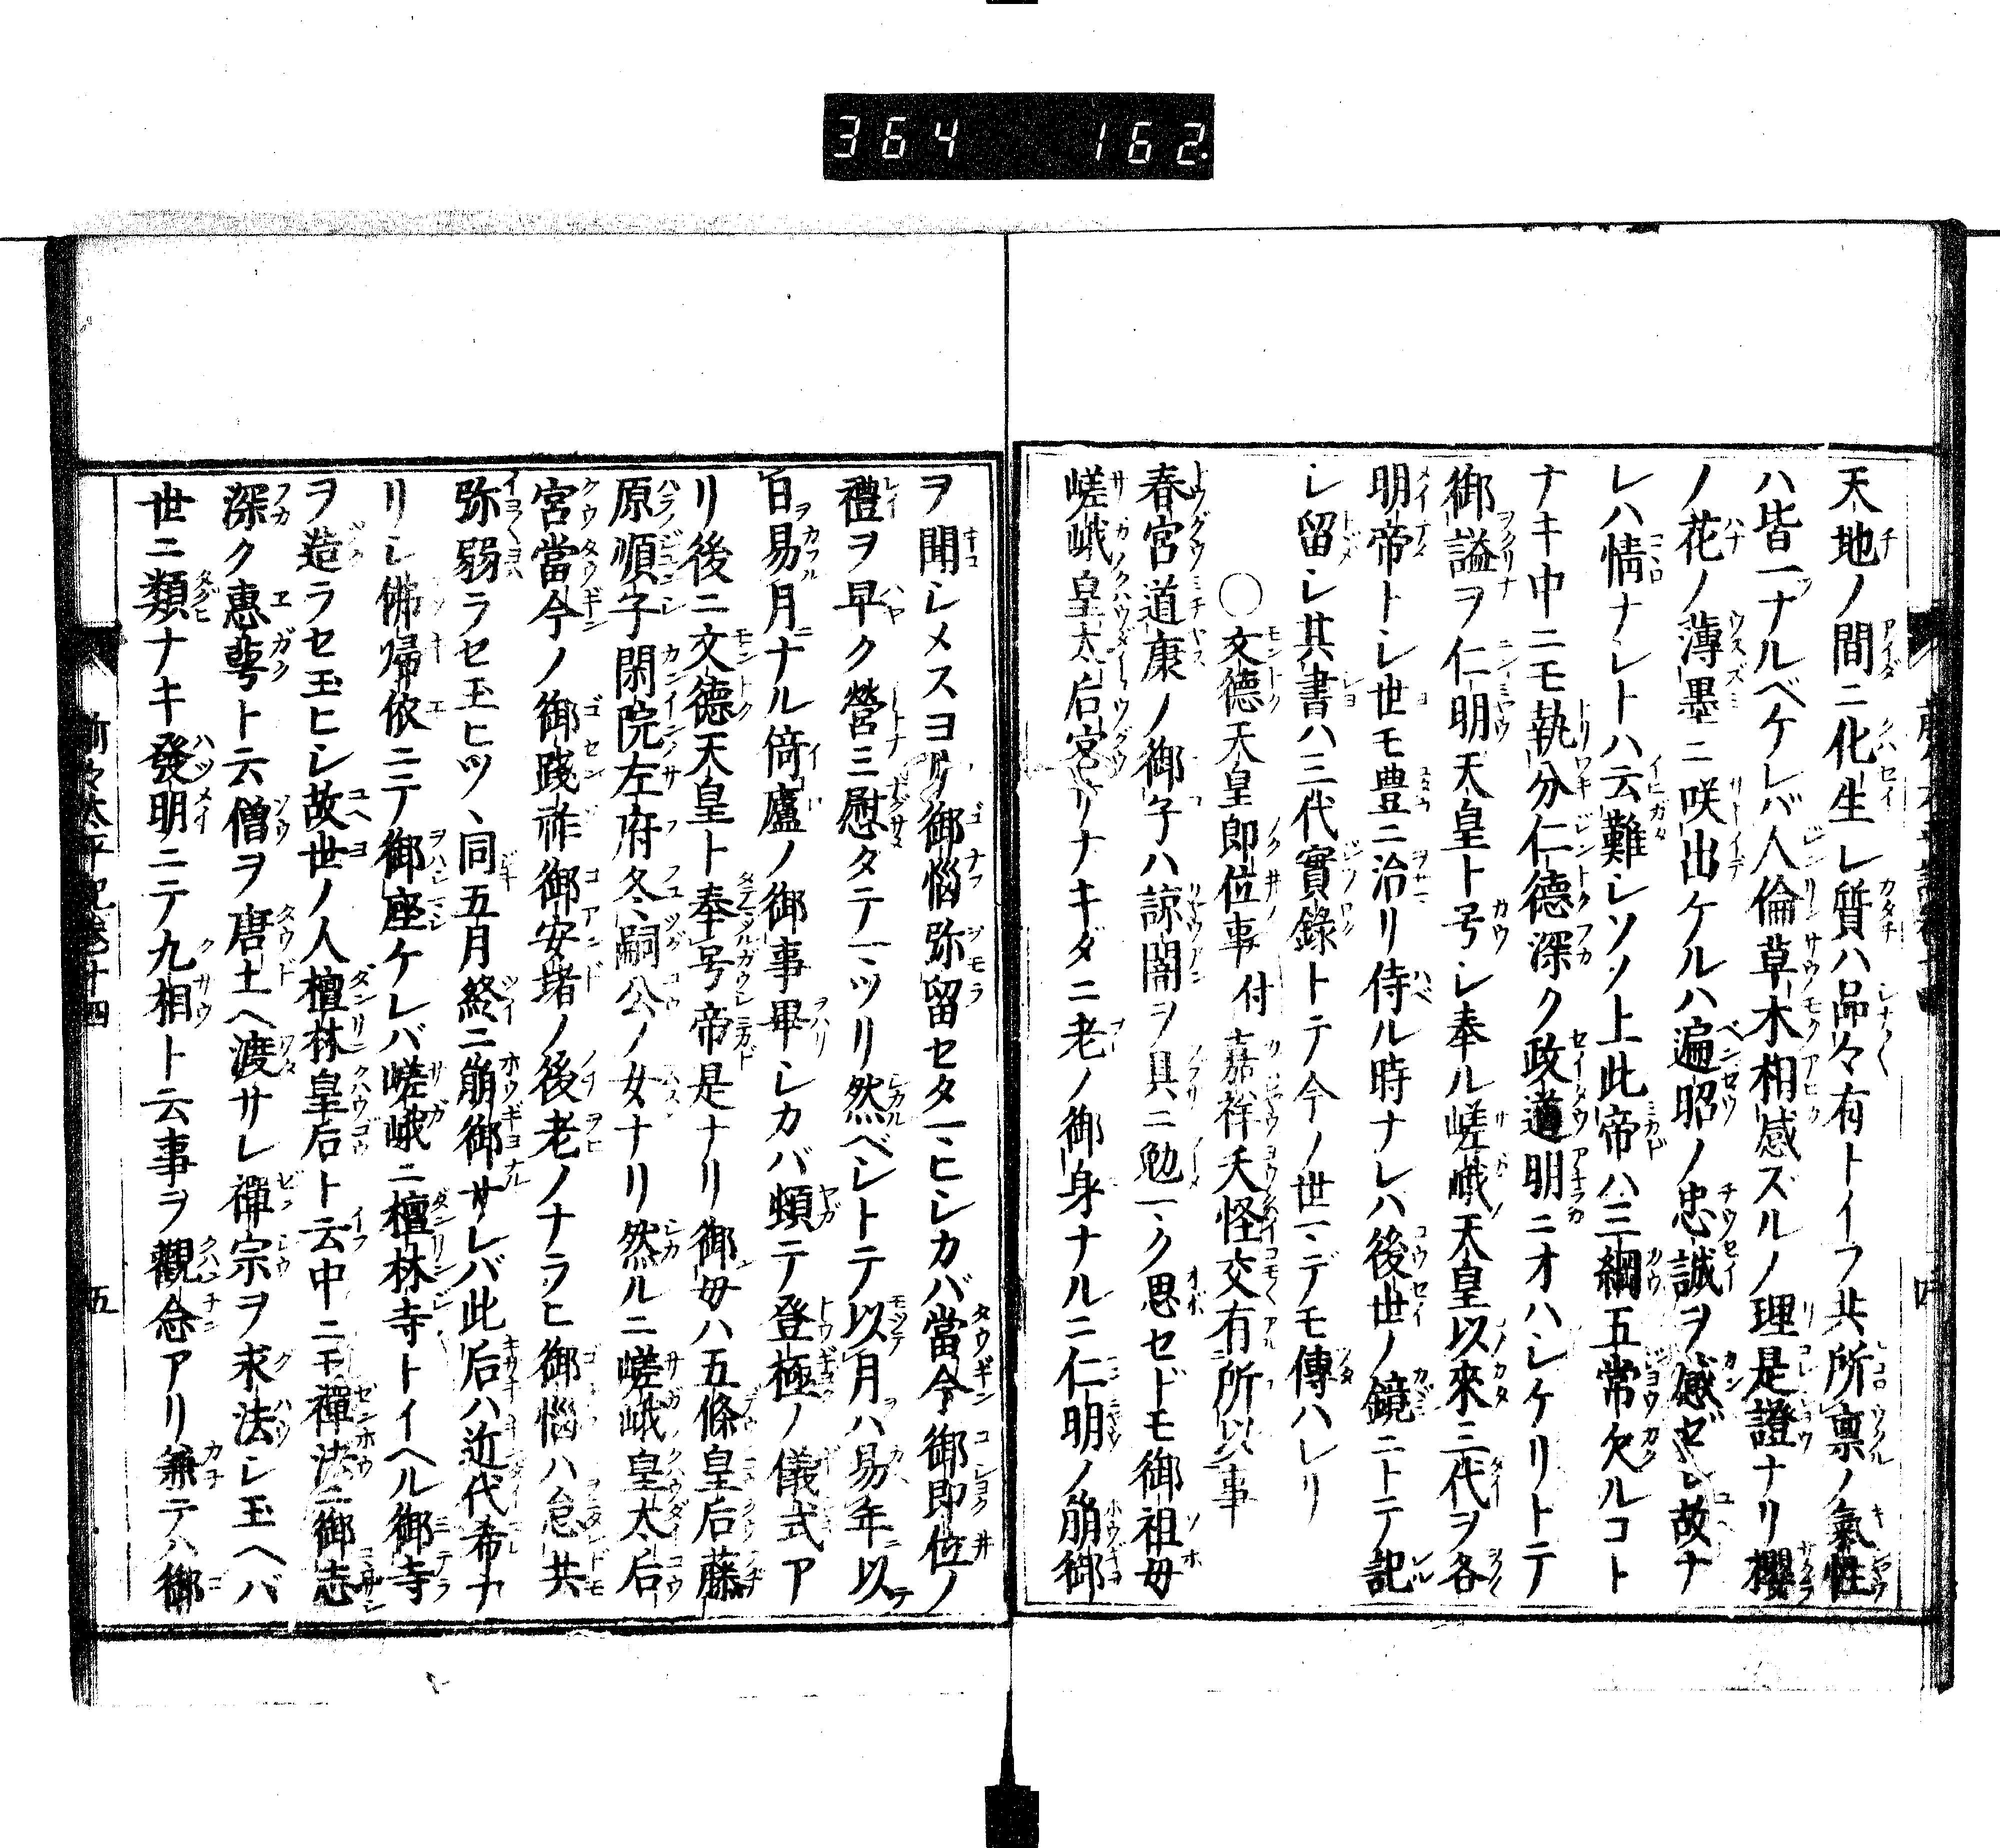 364 162
天地ノ間ニ化生レ質ハ品々有トイフ共所禀ノ氣性
ハ皆一ナルベケレバ人倫草木相感ズルノ理是證ナリ櫻
ノ花ノ薄墨ニ咲出ケルハ遍昭ノ忠誠ヲ感ゼレ故ナ
レハ情ナレトハ云難レソノ上此帝ハ三綱五常欠ルコト
ナキ中ニモ執分仁德深ク政道明ニオハレケリトテ
御謚ヲ仁明天皇ト号レ奉ル嵯峨天皇以來三代ヲ各
明帝トレ世モ豊ニ治リ侍ル時ナレハ後世ノ鏡ニトテ記
レ留レ其書ハ三代實錄トテ今ノ世マデモ傳ハレリ
〇文德天皇即位事付嘉祥夭怪交有所以事
春宮道康ノ御子ハ諒闇ヲ具ニ勉マク思セドモ御祖母
嵯峨皇太后宮サリナキダニ老ノ御身ナルニ仁明ノ崩御
ヲ聞レメスヨリ御惱弥留セタマヒレカバ當今御即位ノ
禮ヲ早ク營ミ慰タテマツリ然ベレトテ以月ハ易年以
日易月ナル倚廬ノ御事畢レカバ頓テ登極ノ儀式ア
リ後ニ文德天皇ト奉号帝是ナリ御母ハ五條皇后藤
原順子閑院左府冬嗣公ノ女ナリ然ルニ嵯峨皇太后
宮當今ノ御踐祚御安堵ノ後老ノナラヒ御惱ハ怠共
弥弱ラセ玉ヒツヽ同五月終ニ崩御サレバ此后ハ近代希ナ
リレ佛歸依ニテ御座ケレバ嵯峨ニ檀林寺トイヘル御寺
ヲ造ラセ玉ヒレ故世ノ人檀林皇后ト云中ニモ禪法ニ御志
深ク惠蕚ト云僧ヲ唐土ヘ渡サレ禪宗ヲ求法レ玉ヘバ
世ニ類ナキ發明ニテ九相ト云事ヲ觀念アリ兼テハ御
五